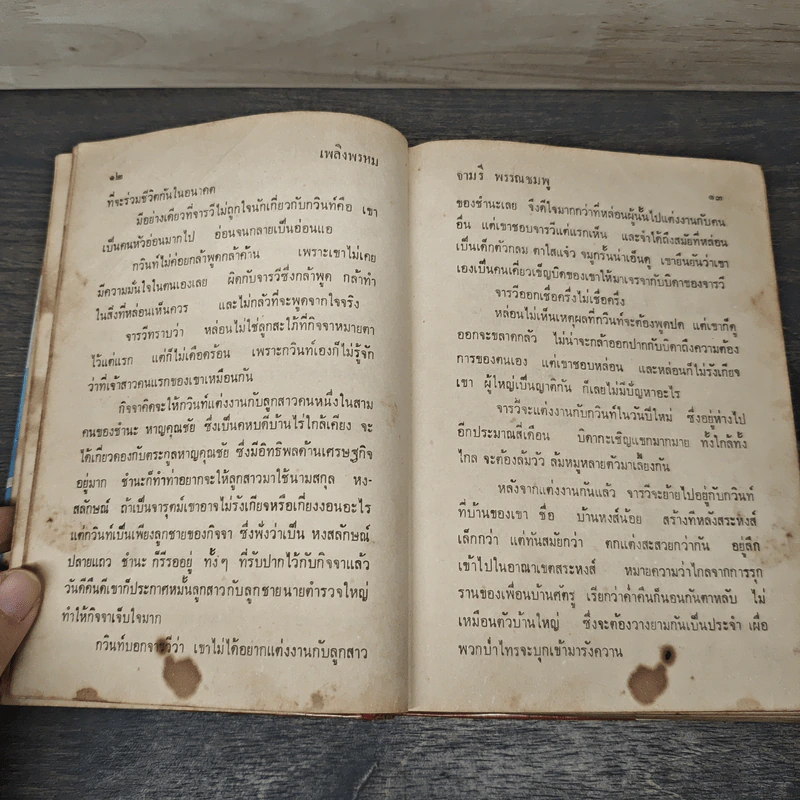 ๑๒
เพลิงพรหม
ที่จะร่วมชีวิตกันในอนาคต
มีอย่างเดียวที่จารวีไม่ถูกใจนักเกี่ยวกับกวินท์คือ เขา
เป็นคนหัวอ่อนมากไป อ่อนจนกลายเป็นอ่อนแอ
กวินท์ไม่ค่อยกล้าพูดกล้าค้าน เพราะเขาไม่เคย
มีความมั่นใจในตนเองเลย ผิดกับจารวีซึ่งกล้าพูด กล้าทำ
ในสิ่งที่หล่อนเห็นควร และไม่กลัวที่จะพูดจากใจจริง
จารวีทราบว่า หล่อนไม่ใช่ลูกสะใภ้ที่กิจจาหมายตา
ไว้แต่แรก แต่ก็ไม่เดือดร้อน เพราะกวินท์เองก็ไม่รู้จัก
ว่าที่เจ้าสาวคนแรกของเขาเหมือนกัน
กิจจาคิดจะให้กวินท์แต่งงานกับลูกสาวคนหนึ่งในสาม
คนของชำนะ หาญคุณชัย ซึ่งเป็นคหบดีบ้านไร่ใกล้เคียง จะ
ได้เกี่ยวดองกับตระกูลหาญคุณชัย ซึ่งมีอิทธิพลด้านเศรษฐกิจ
อยู่มาก ชำนะก็ทำท่าอยากจะให้ลูกสาวมาใช้นามสกุล หง-
สลักษณ์ ถ้าเป็นจารุตม์เขาอาจไม่รังเกียจหรือเกี่ยงงอนอะไร
แต่กวินท์เป็นเพียงลูกชายของกิจจา ซึ่งพั่วว่าเป็น หงสลักษณ์
ปลายแถว ชำนะ ก็รีรออยู่ ทั้ง ๆ ที่รับปากไว้กับกิจจาแล้ว
วันดีคืนดีเขาก็ประกาศหมั้นลูกสาวกับลูกชายนายตำรวจใหญ่
ทำให้กิจจาเจ็บใจมาก
กวินท์บอกจารวีว่า เขาไม่ได้อยากแต่งงานกับลูกสาว
จามรี พรรณชมพู
๑๓
ของชำนะเลย จึงดีใจมากกว่าที่หล่อนผู้นั้นไปแต่งงานกับคน
อื่น แต่เขาชอบจารวีแต่แรกเห็น และจำได้ถึงสมัยที่หล่อน
เป็นเด็กตัวกลม ตาใสแจ๋ว จมูกรั้นน่าเอ็นดู เขายืนยันว่าเขา
เองเป็นคนเคี่ยวเข็ญบิดาของเขาให้มาเจรจากับบิดาของจารวี
จารวีออกเชื่อครึ่งไม่เชื่อครึ่ง
หล่อนไม่เห็นเหตุผลที่กวินท์จะต้องพูดปด แต่เขาก็ดู
ออกจะขลาดกลัว ไม่น่าจะกล้าออกปากกับบิดาถึงความต้อง
การของตนเอง แต่เขาชอบหล่อน และหล่อนก็ไม่รังเกียจ
เขา ผู้ใหญ่เป็นญาติกัน ก็เลยไม่มีปัญหาอะไร
จารวีจะแต่งงานกับกวินท์ในวันปีใหม่ ซึ่งอยู่ห่างไป
อีกประมาณสี่เดือน บิดากะเชิญแขกมากมาย ทั้งใกล้ทั้ง
ไกล จะต้องล้มวัว ล้มหมูหลายตัวมาเลี้ยงกัน
หลังจากแต่งงานกันแล้ว จารวีจะย้ายไปอยู่กับกวินท์
ที่บ้านของเขา ชื่อ บ้านหงส์น้อย สร้างที่หลังสระหงส์
เล็กกว่า แต่ทันสมัยกว่า ตกแต่งสะสวยกว่ากัน อยู่ลึก
เข้าไปในอาณาเขตสระหงส์ หมายความว่าไกลจากการรุก
รานของเพื่อนบ้านศัตรู เรียกว่าค่ำคืนก็นอนกันตาหลับ ไม่
เหมือนตัวบ้านใหญ่ ซึ่งจะต้องวางยามกันเป็นประจำ เผื่อ
พวกป่าไทรจะบุกเข้ามารังควาน